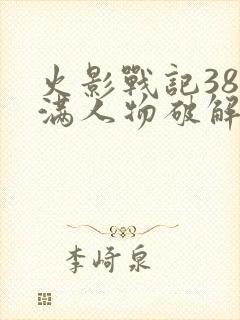 火影戰記38
满人物破解
李崎泉